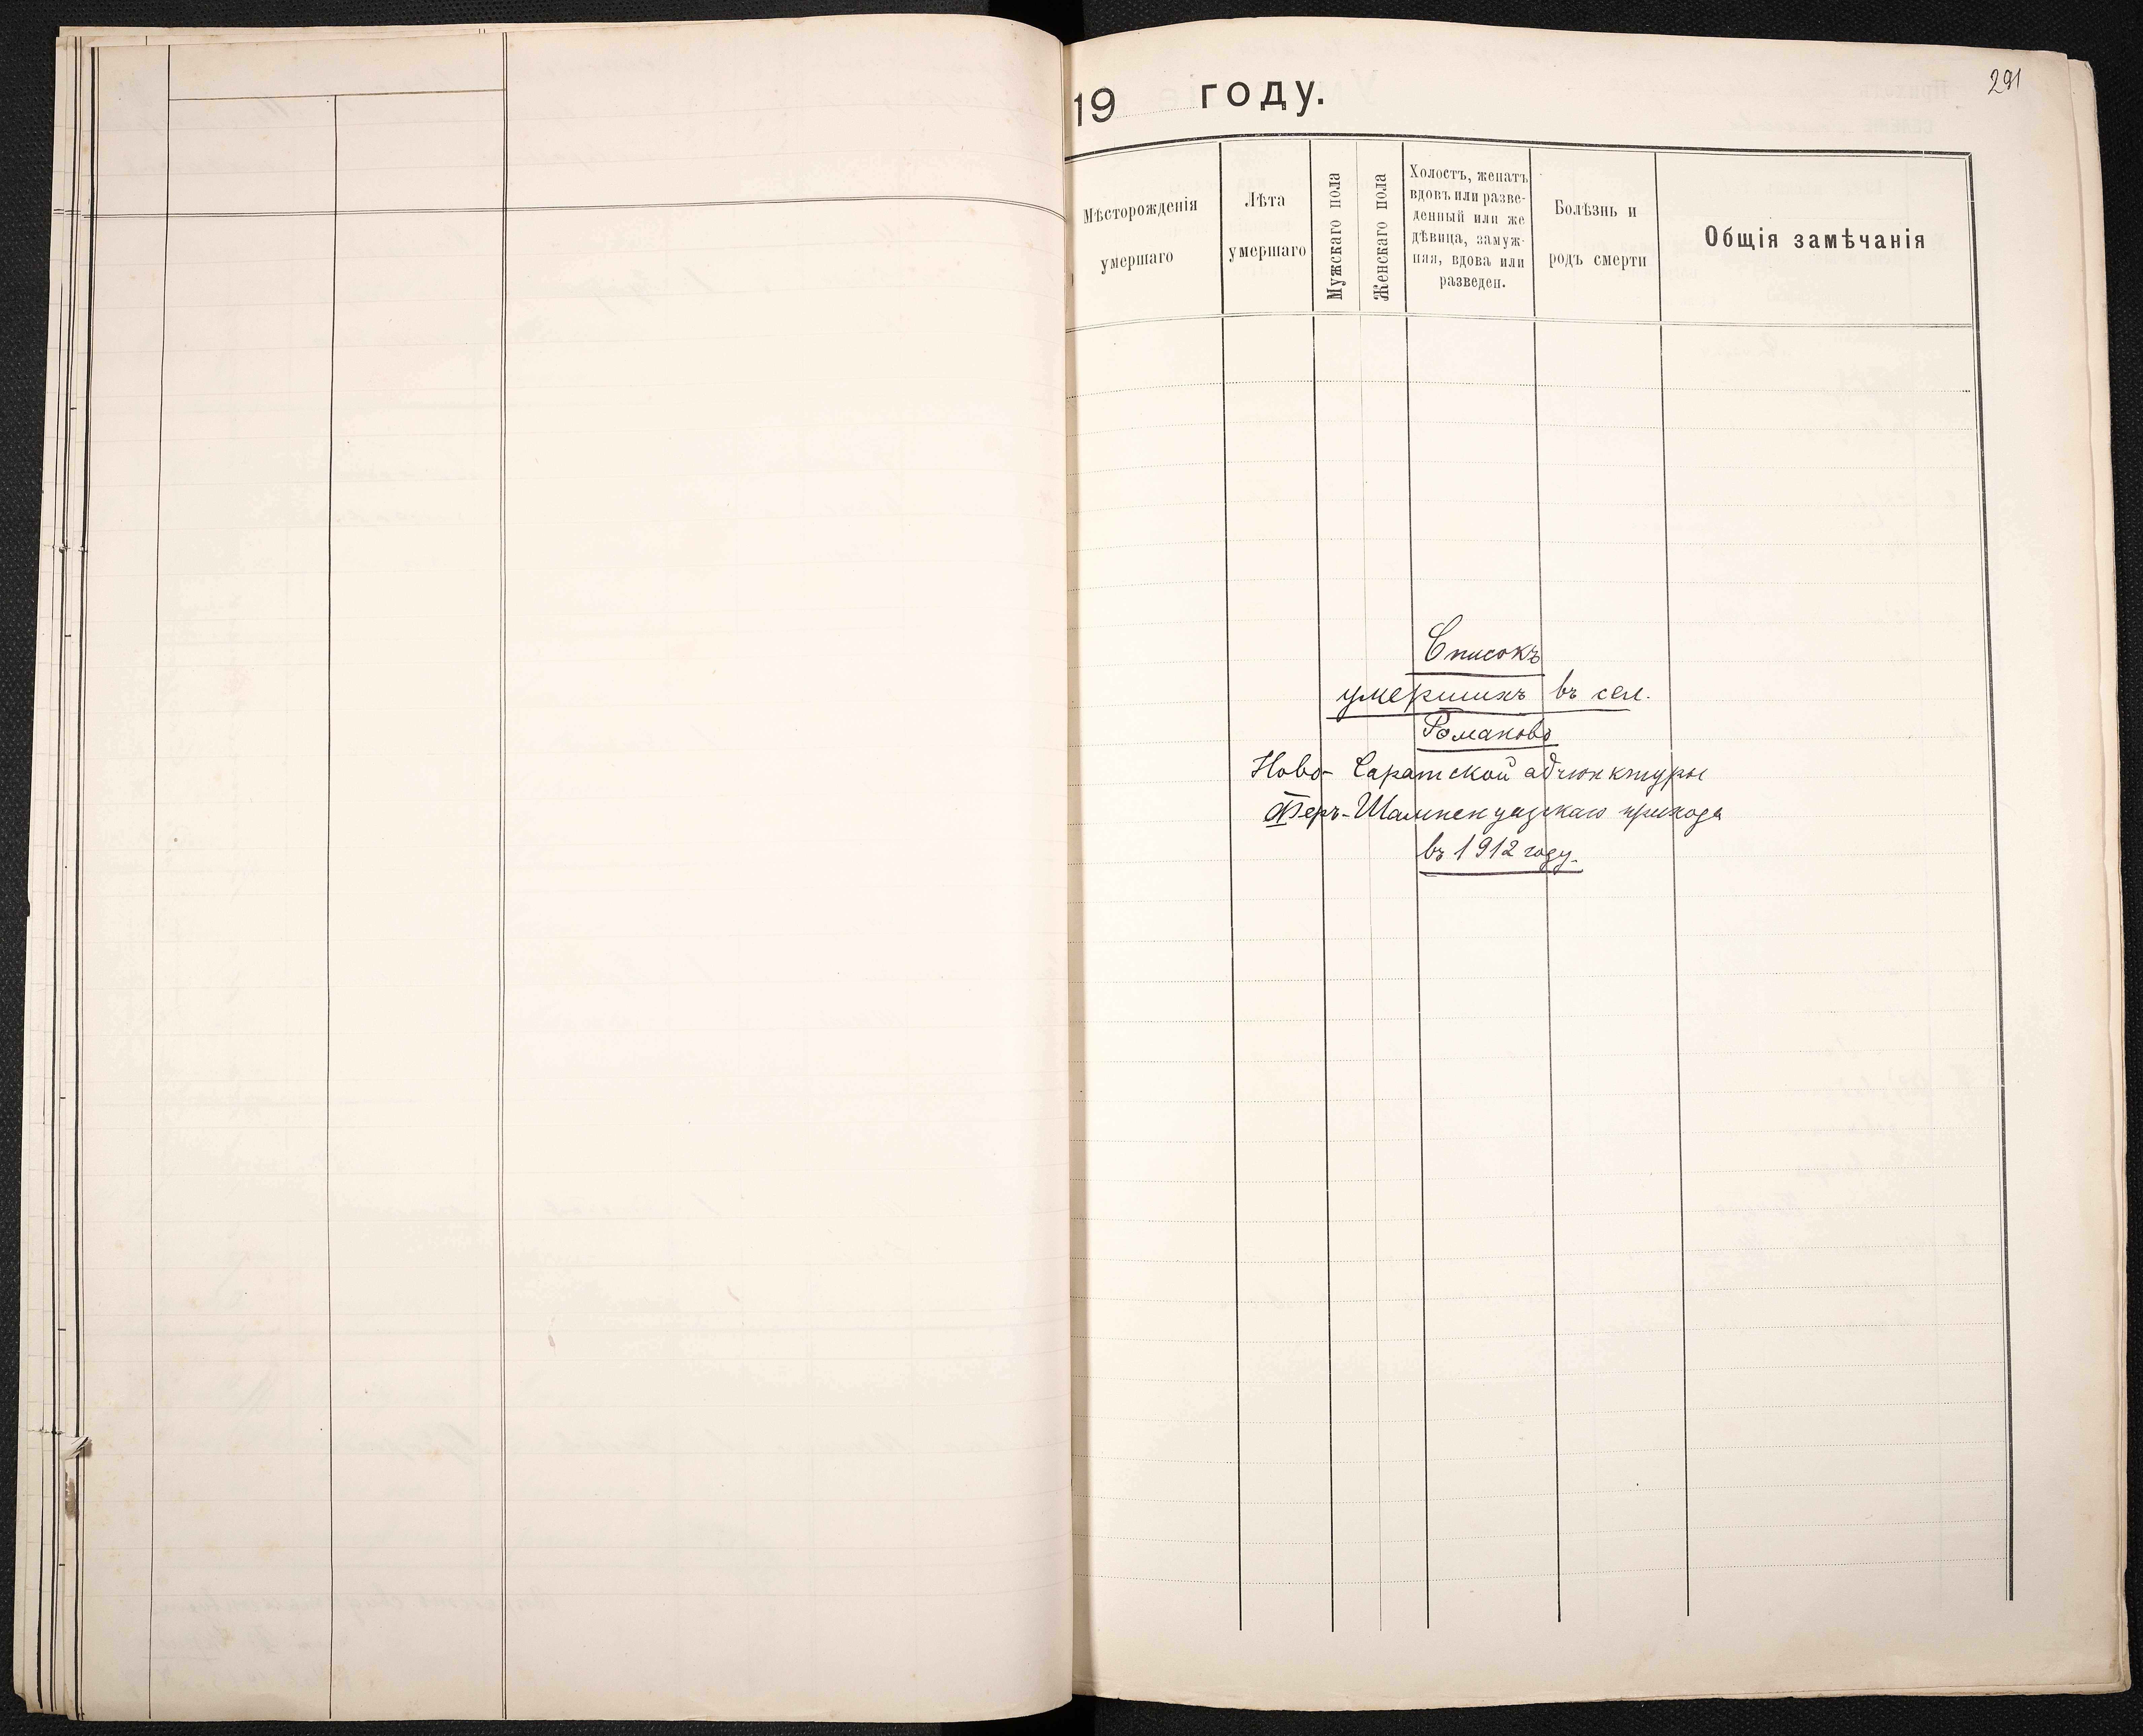 291
19 году.
Мѣсторожденія
умершаго
Лѣта
умершаго
Мужскаго пола
Женскаго пола
Холостъ, женатъ
вдовъ или разве-
денный или же
дѣвица, замуж-
няя, вдова или
разведен.
Болѣзнь и
родъ смерти
Общія замѣчанія
Списокъ
умершихъ въ сел.
Романово
Ново-Саратской адъюнктуры
прихода
въ 1912 году.